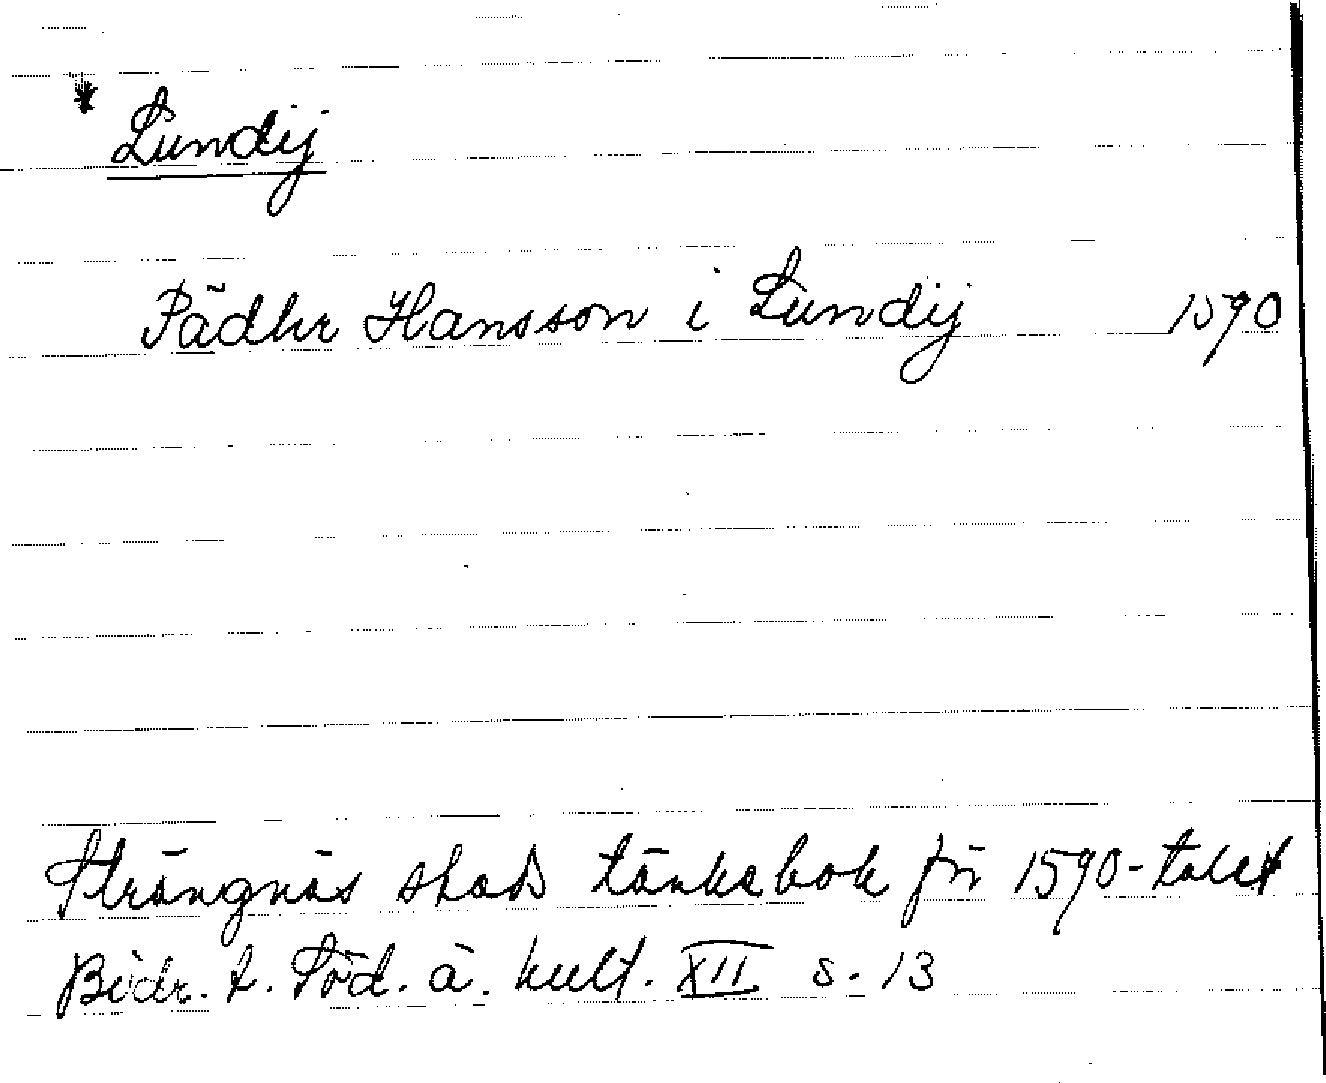 * Lundij
Pädhr Hansson i Lundij 1590
Strängnäs stads tänkebok för 1590-talet
Bidr. t. Söd. ä. kult. XII s. 13